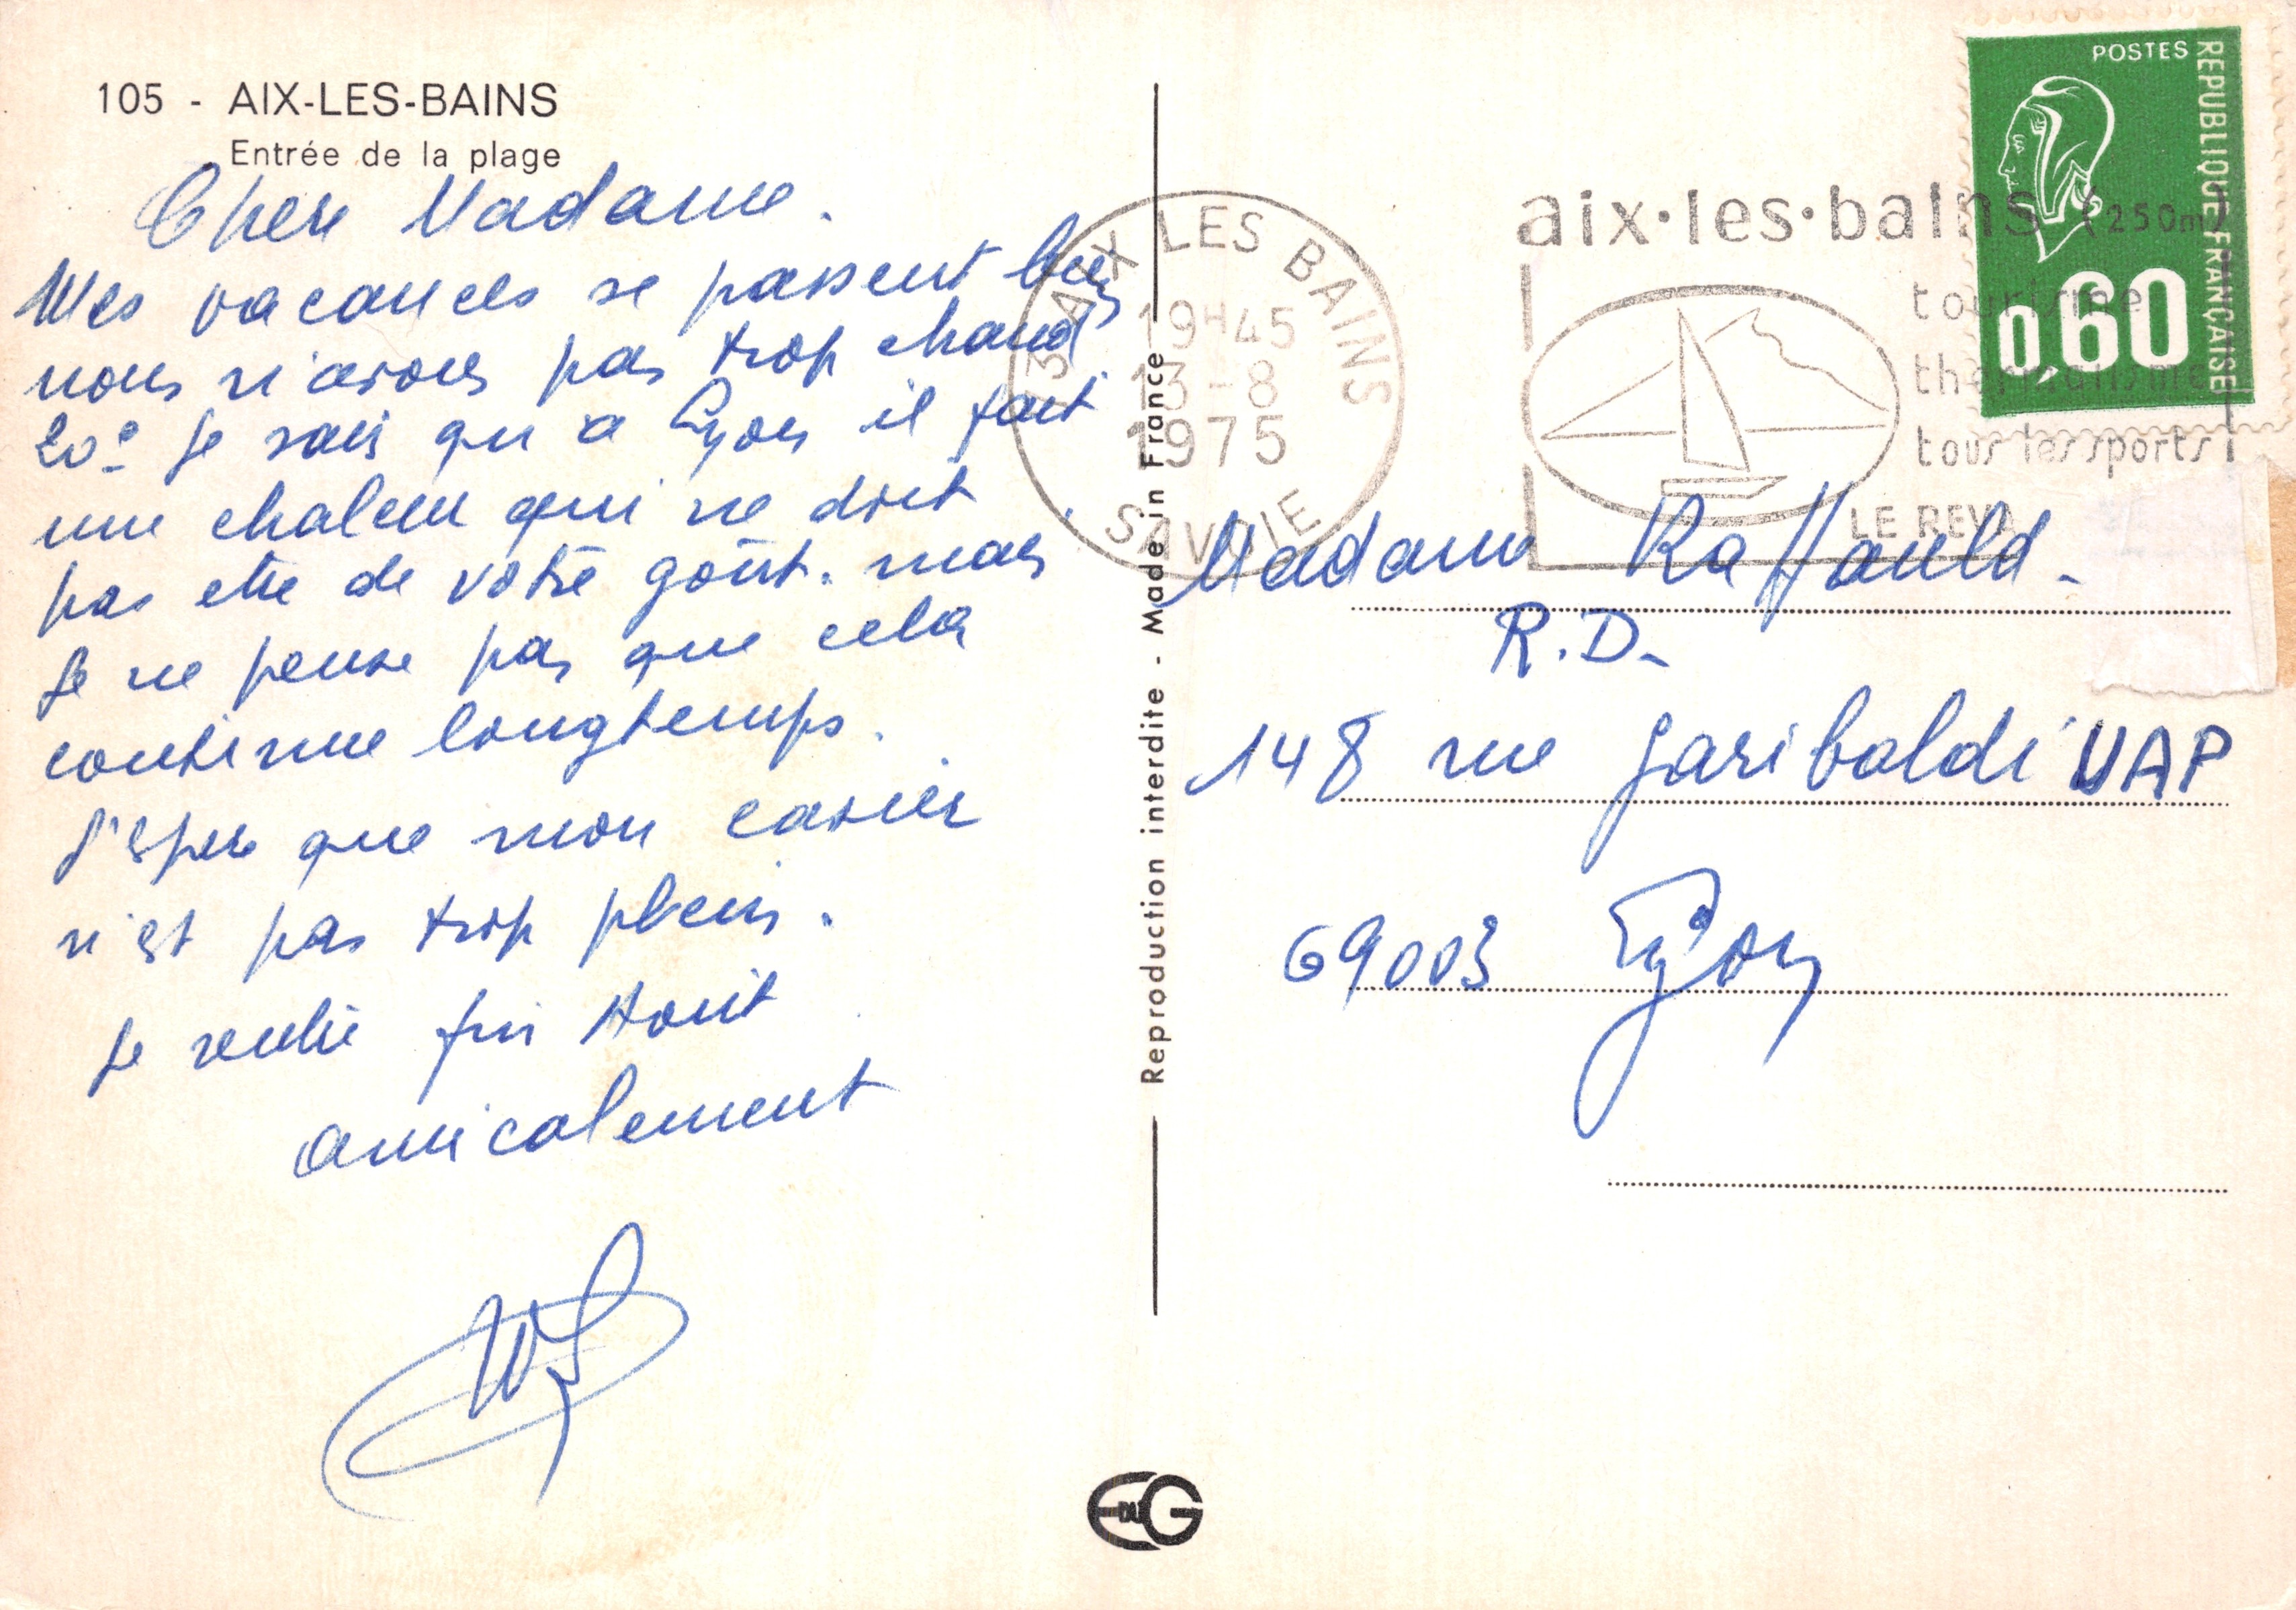 105 - AIX-LES-BAINS
Entrée de la plage
Chere Madame.
Mes vacances se passent bien
nous n'avons pas trop chaud
20° Je sais qu'a Lyon il fait
une chaleur qui ne doit
pas etre de votre goût. mais
Je ne pense pas que cela
continue longtemps.
J'espere que mon casier
n'est pas trop plein.
Je rentre fin Aout
amicalement
Reproduction interdite - Made in France
EDUG
73 AIX LES BAINS
19H45
13-8
1975
SAVOIE
aix·les·bains (250m)
tourisme
thermalisme
tous les sports
LE REVA
POSTES
REPUBLIQUE FRANÇAISE
0,60
Madame Raffauld.
R.D.
148 rue Garibaldi UAP
69003 Lyon